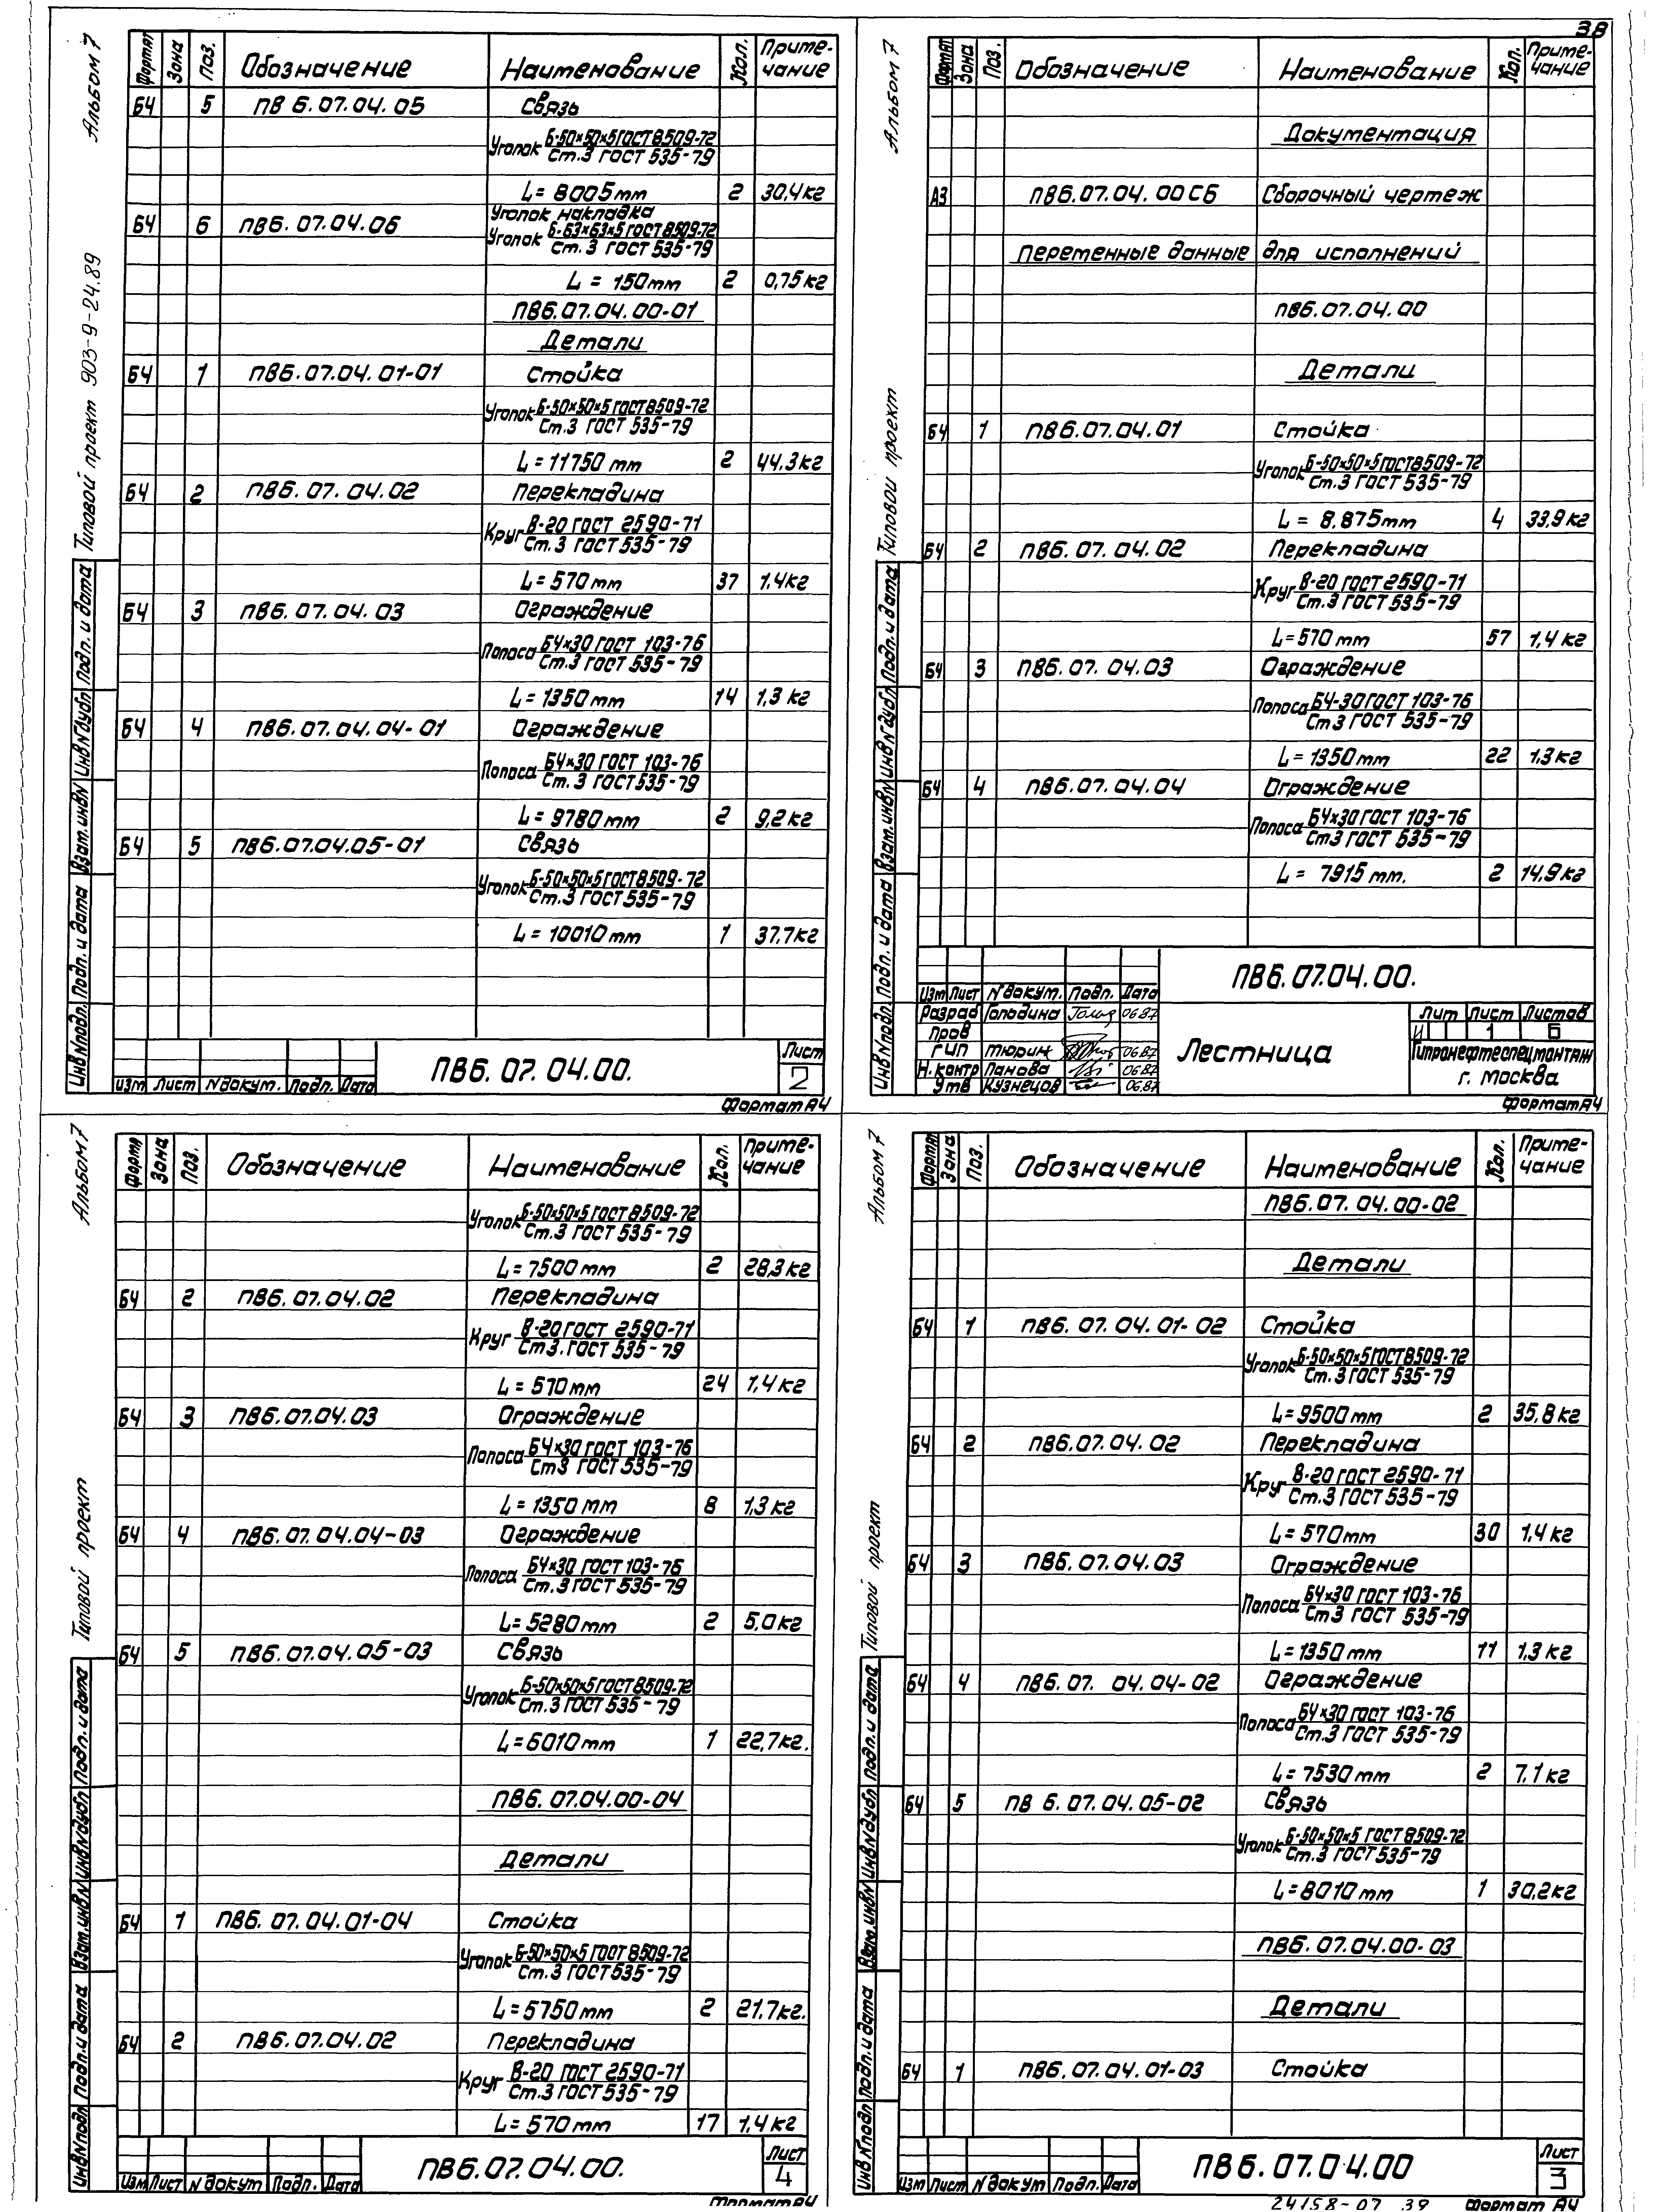 38
Альбом 7
Типовой проект 903-9-24.89
Формат Зона Поз. Обозначение Наименование Кол. Приме-
чание
БЧ 5 ПВ 6.07.04.05 Связь
Уголок Б-50×50×5 ГОСТ 8509-72
Ст.3 ГОСТ 535-79
L = 8005 mm 2 30,4 кг
Уголок накладка
БЧ 6 ПВ6.07.04.06 Уголок Б-63×63×5 ГОСТ 8509-72
Ст.3 ГОСТ 535-79
L = 150 mm 2 0,75 кг
ПВ6.07.04.00-01
Детали
БЧ 1 ПВ6.07.04.01-01 Стойка
Уголок Б-50×50×5 ГОСТ 8509-72
Ст.3 ГОСТ 535-79
L = 11750 mm 2 44,3 кг
БЧ 2 ПВ6.07.04.02 Перекладина
Круг В-20 ГОСТ 2590-71
Ст.3 ГОСТ 535-79
L = 570 mm 37 1.4 кг
БЧ 3 ПВ6.07.04.03 Ограждение
Полоса Б4×30 ГОСТ 103-76
Ст.3 ГОСТ 535-79
L = 1350 mm 14 1,3 кг
БЧ 4 ПВ6.07.04.04-01 Ограждение
Полоса Б4×30 ГОСТ 103-76
Ст.3 ГОСТ 535-79
L = 9780 mm 2 9,2 кг
БЧ 5 ПВ6.07.04.05-01 Связь
Уголок Б-50×50×5 ГОСТ 8509-72
Ст.3 ГОСТ 535-79
L = 10010 mm 1 37,7 кг
Инв№подл. Подп. и дата Взам.инв№ Инв№дубл Подп. и дата
Изм Лист №докум. Подп. Дата
ПВ6.07.04.00.
Лист
2
Формат А4
Альбом 7
Типовой проект
Формат Зона Поз. Обозначение Наименование Кол. Приме-
чание
Документация
А3 ПВ6.07.04.00 СБ Сборочный чертеж
Переменные данные для исполнений
ПВ6.07.04.00
Детали
БЧ 1 ПВ6.07.04.01 Стойка
Уголок Б-50×50×5 ГОСТ 8509-72
Ст.3 ГОСТ 535-79
L = 8.875 mm 4 33,9 кг
БЧ 2 ПВ6.07.04.02 Перекладина
Круг В-20 ГОСТ 2590-71
Ст.3 ГОСТ 535-79
L = 570 mm 57 1,4 кг
БЧ 3 ПВ6.07.04.03 Ограждение
Полоса Б4-30 ГОСТ 103-76
Ст 3 ГОСТ 535-79
L = 1350 mm 22 1.3 кг
БЧ 4 ПВ6.07.04.04 Ограждение
Полоса Б4×30 ГОСТ 103-76
Ст3 ГОСТ 535-79
L = 7915 mm. 2 14.9 кг
Инв№подл. Подп. и дата Взам.инв№ Инв№дубл Подп. и дата
ПВ6.07.04.00.
Изм Лист №докум. Подп. Дата
Разраб Гольдина 06.87
Пров
ГИП Тюрин 06.87
Н.контр Панова 06.87
Утв Кузнецов 06.87
Лестница
Лит Лист Листов
И 1 6
Гипронефтеспецмонтаж
г. Москва
Формат А4
Альбом 7
Типовой проект
Формат Зона Поз. Обозначение Наименование Кол. Приме-
чание
Уголок Б-50×50×5 ГОСТ 8509-72
Ст.3 ГОСТ 535-79
L = 7500 mm 2 28,3 кг
БЧ 2 ПВ6.07.04.02 Перекладина
Круг В-20 ГОСТ 2590-71
Ст3. ГОСТ 535-79
L = 570 mm 24 1,4 кг
БЧ 3 ПВ6.07.04.03 Ограждение
Полоса Б4×30 ГОСТ 103-76
Ст3 ГОСТ 535-79
L = 1350 mm 8 1,3 кг
БЧ 4 ПВ6.07.04.04-03 Ограждение
Полоса Б4×30 ГОСТ 103-76
Ст.3 ГОСТ 535-79
L = 5280 mm 2 5,0 кг
БЧ 5 ПВ6.07.04.05-03 Связь
Уголок Б-50×50×5 ГОСТ 8509-72
Ст.3 ГОСТ 535-79
L = 6010 mm 1 22,7 кг.
ПВ6.07.04.00-04
Детали
БЧ 1 ПВ6.07.04.01-04 Стойка
Уголок Б-50×50×5 ГОСТ 8509-72
Ст.3 ГОСТ 535-79
L = 5750 mm 2 21,7 кг.
БЧ 2 ПВ6.07.04.02 Перекладина
Круг В-20 ГОСТ 2590-71
Ст.3 ГОСТ 535-79
L = 570 mm 17 1,4 кг
Инв№подл Подп. и дата Взам.инв№ Инв№дубл Подп. и дата
Изм Лист №докум Подп. Дата
ПВ6.07.04.00.
Лист
4
Формат А4
Альбом 7
Типовой проект
Формат Зона Поз. Обозначение Наименование Кол. Приме-
чание
ПВ6.07.04.00-02
Детали
БЧ 1 ПВ6.07.04.01-02 Стойка
Уголок Б-50×50×5 ГОСТ 8509-72
Ст.3 ГОСТ 535-79
L = 9500 mm 2 35,8 кг
БЧ 2 ПВ6.07.04.02 Перекладина
Круг В-20 ГОСТ 2590-71
Ст.3 ГОСТ 535-79
L = 570 mm 30 1,4 кг
БЧ 3 ПВ6.07.04.03 Ограждение
Полоса Б4×30 ГОСТ 103-76
Ст3 ГОСТ 535-79
L = 1350 mm 11 1,3 кг
БЧ 4 ПВ6.07.04.04-02 Ограждение
Полоса Б4×30 ГОСТ 103-76
Ст.3 ГОСТ 535-79
L = 7530 mm 2 7,1 кг
БЧ 5 ПВ 6.07.04.05-02 Связь
Уголок Б-50×50×5 ГОСТ 8509-72
Ст.3 ГОСТ 535-79
L = 8010 mm 1 30,2 кг
ПВ6.07.04.00-03
Детали
БЧ 1 ПВ6.07.04.01-03 Стойка
Инв№подл Подп. и дата Взам.инв№ Инв№дубл Подп. и дата
Изм Лист №докум Подп. Дата
ПВ6.07.04.00
Лист
3
24158-07 39 Формат А4